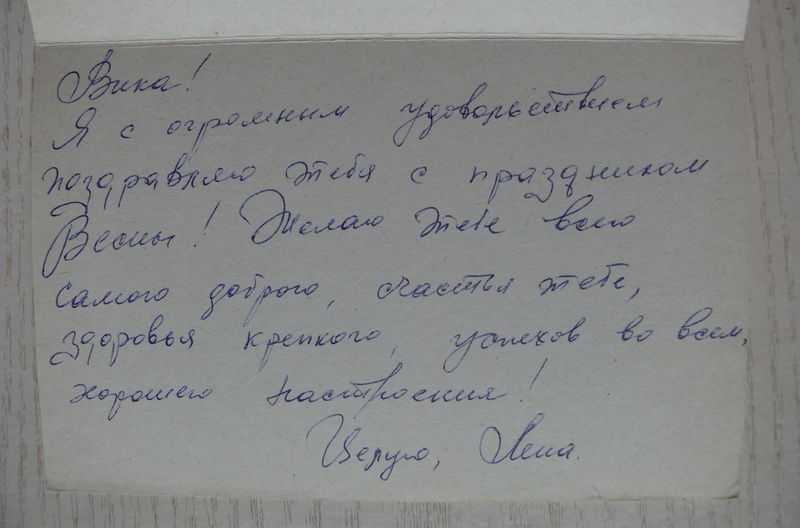 Вика!
Я с огромным удовольствием
поздравляю тебя с праздником
Весны! Желаю тебе всего
самого доброго, счастья тебе,
здоровья крепкого, успехов во всем,
хорошего настроения!
Целую, Лена.